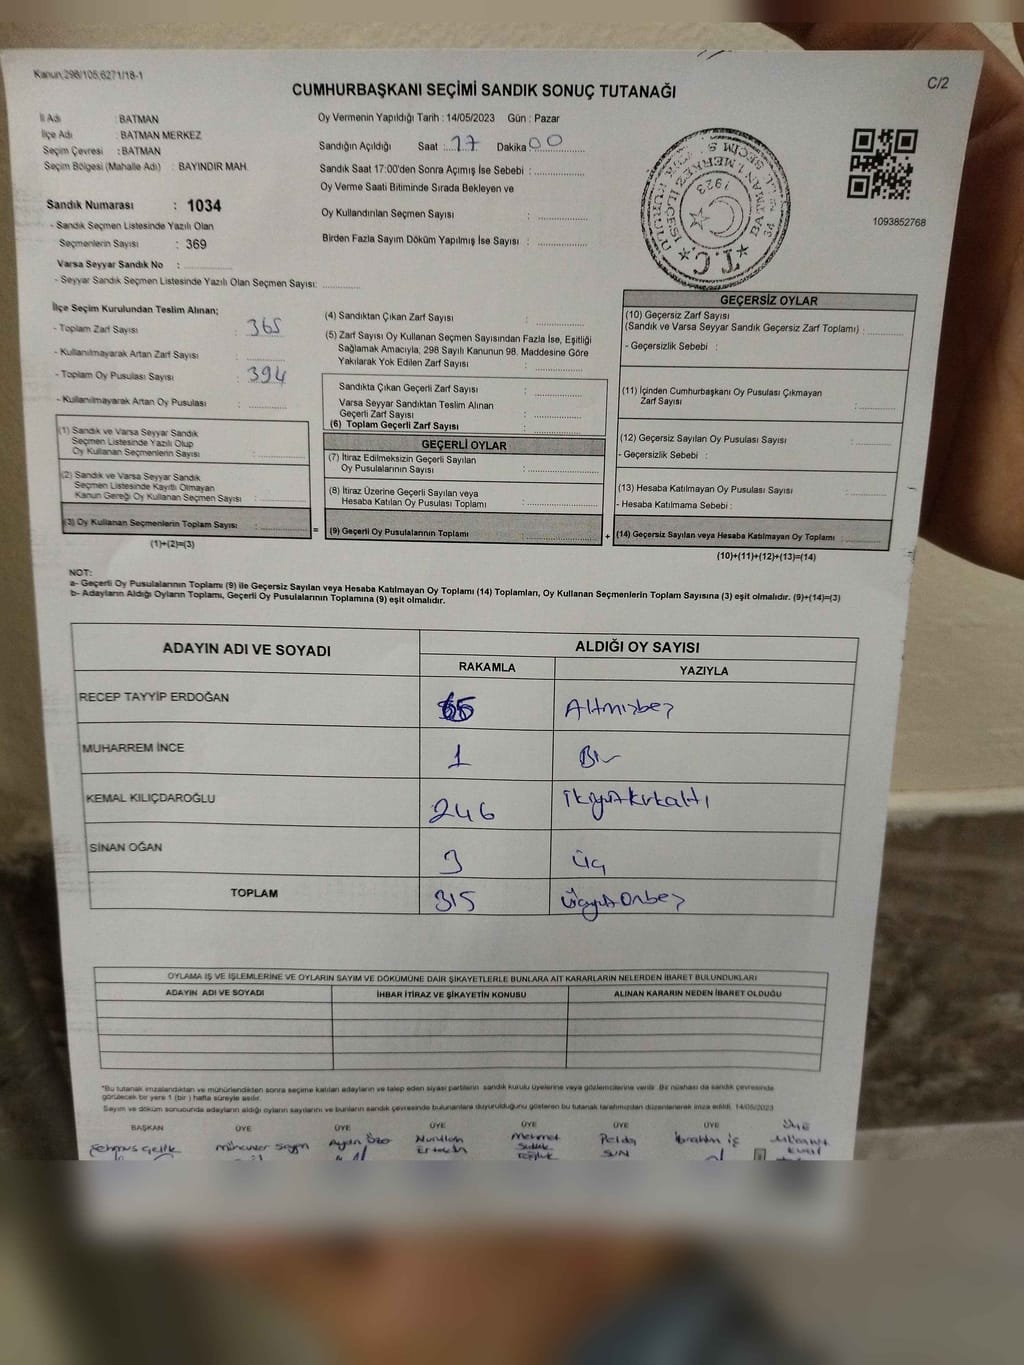 Kanun;298/105,6271/18-1
C/2
CUMHURBAŞKANI SEÇİMİ SANDIK SONUÇ TUTANAĞI
İl Adı : BATMAN
İlçe Adı : BATMAN MERKEZ
Seçim Çevresi : BATMAN
Seçim Bölgesi (Mahalle Adı) : BAYINDIR MAH.
Oy Vermenin Yapıldığı Tarih : 14/05/2023 Gün : Pazar
Sandığın Açıldığı Saat : 17 Dakika 00
Sandık Saat 17:00'den Sonra Açımış İse Sebebi :
Oy Verme Saati Bitiminde Sırada Bekleyen ve
Oy Kullandırılan Seçmen Sayısı :
Birden Fazla Sayım Döküm Yapılmış İse Sayısı :
1093852768
Sandık Numarası : 1034
- Sandık Seçmen Listesinde Yazılı Olan
Seçmenlerin Sayısı : 369
Varsa Seyyar Sandık No :
- Seyyar Sandık Seçmen Listesinde Yazılı Olan Seçmen Sayısı:
İlçe Seçim Kurulundan Teslim Alınan;
- Toplam Zarf Sayısı : 365
- Kullanılmayarak Artan Zarf Sayısı :
- Toplam Oy Pusulası Sayısı : 394
- Kullanılmayarak Artan Oy Pusulası :
(1) Sandık ve Varsa Seyyar Sandık
Seçmen Listesinde Yazılı Olup
Oy Kullanan Seçmenlerin Sayısı :
(2) Sandık ve Varsa Seyyar Sandık
Seçmen Listesinde Kayıtlı Olmayan
Kanun Gereği Oy Kullanan Seçmen Sayısı :
(3) Oy Kullanan Seçmenlerin Toplam Sayısı :
(1)+(2)=(3)
(4) Sandıktan Çıkan Zarf Sayısı :
(5) Zarf Sayısı Oy Kullanan Seçmen Sayısından Fazla İse, Eşitliği
Sağlamak Amacıyla, 298 Sayılı Kanunun 98. Maddesine Göre
Yakılarak Yok Edilen Zarf Sayısı :
Sandıkta Çıkan Geçerli Zarf Sayısı :
Varsa Seyyar Sandıktan Teslim Alınan
Geçerli Zarf Sayısı :
(6) Toplam Geçerli Zarf Sayısı :
GEÇERLİ OYLAR
(7) İtiraz Edilmeksizin Geçerli Sayılan
Oy Pusulalarının Sayısı :
(8) İtiraz Üzerine Geçerli Sayılan veya
Hesaba Katılan Oy Pusulası Toplamı :
= (9) Geçerli Oy Pusulalarının Toplamı :
GEÇERSİZ OYLAR
(10) Geçersiz Zarf Sayısı
(Sandık ve Varsa Seyyar Sandık Geçersiz Zarf Toplamı) :
- Geçersizlik Sebebi :
(11) İçinden Cumhurbaşkanı Oy Pusulası Çıkmayan
Zarf Sayısı :
(12) Geçersiz Sayılan Oy Pusulası Sayısı :
- Geçersizlik Sebebi :
(13) Hesaba Katılmayan Oy Pusulası Sayısı :
- Hesaba Katılmama Sebebi :
+ (14) Geçersiz Sayılan veya Hesaba Katılmayan Oy Toplamı :
(10)+(11)+(12)+(13)=(14)
NOT:
a- Geçerli Oy Pusulalarının Toplamı (9) ile Geçersiz Sayılan veya Hesaba Katılmayan Oy Toplamı (14) Toplamları, Oy Kullanan Seçmenlerin Toplam Sayısına (3) eşit olmalıdır. (9)+(14)=(3)
b- Adayların Aldığı Oyların Toplamı, Geçerli Oy Pusulalarının Toplamına (9) eşit olmalıdır.
ADAYIN ADI VE SOYADI ALDIĞI OY SAYISI
RAKAMLA YAZIYLA
RECEP TAYYİP ERDOĞAN 65 Altmışbeş
MUHARREM İNCE 1 Bir
KEMAL KILIÇDAROĞLU 246 ikiyüzkırkaltı
SİNAN OĞAN 3 üç
TOPLAM 315 üçyüzonbeş
OYLAMA İŞ VE İŞLEMLERİNE VE OYLARIN SAYIM VE DÖKÜMÜNE DAİR ŞİKAYETLERLE BUNLARA AİT KARARLARIN NELERDEN İBARET BULUNDUKLARI
ADAYIN ADI VE SOYADI İHBAR İTİRAZ VE ŞİKAYETİN KONUSU ALINAN KARARIN NEDEN İBARET OLDUĞU
*Bu tutanak imzalandıktan ve mühürlendikten sonra seçime katılan adayların ve talep eden siyasi partilerin sandık kurulu üyelerine veya gözlemcilerine verilir. Bir nüshası da sandık çevresinde
görülecek bir yere 1 (bir) hafta süreyle asılır.
Sayım ve döküm sonucunda adayların aldığı oyların sayılarını ve bunların sandık çevresinde bulunanlara duyurulduğunu gösteren bu tutanak tarafımızdan düzenlenerek imza edildi. 14/05/2023
BAŞKAN ÜYE ÜYE ÜYE ÜYE ÜYE ÜYE ÜYE
Şehmus Çelik Münevver Mehmet Pelda İbrahim İş
SUN